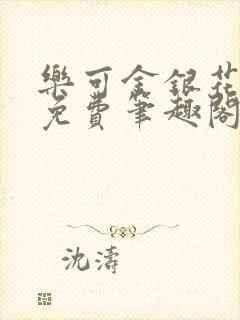 樂可金銀花
免費筆趣閣
沈濤